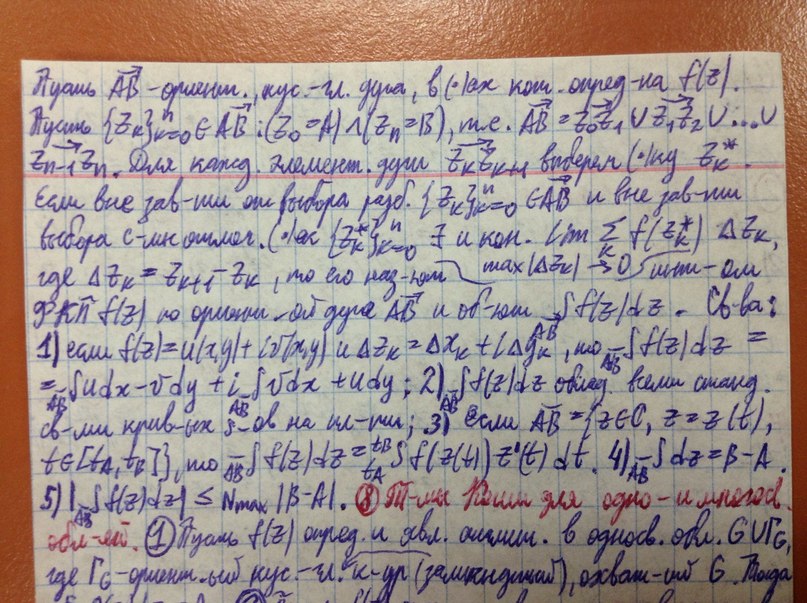 Пусть A͞B⃗ -ориент., кус.-гл. дуга, в (·)ах кот. опред-на f(z).
Пусть {Z_k}ⁿ_{k=0} ∈ AB⃗ : (Z_0=A) ∧ (Z_n=B), т.е. AB⃗ = Z_0Z_1⃗ ∪ Z_1Z_2⃗ ∪ ... ∪
Z_{n-1}Z_n⃗. Для кажд. элемент. дуги Z_kZ_{k+1}⃗ выберем (·)ку Z_k*.
Если вне зав-ти от выбора разб. {Z_k}ⁿ_{k=0} ∈ AB⃗ и вне зав-ти
выбора с-мы отмеч. (·)ек {Z_k*}ⁿ_{k=0} ∃ и кон. lim Σ_k f(Z_k*) ΔZ_k,
где ΔZ_k = Z_{k+1} - Z_k, то его наз-ют max|ΔZ_k| → 0 инт-ом
ФКП f(z) по ориент-ой дуге AB⃗ и об-ют _{AB⃗}∫f(z)dz. Св-ва:
1) если f(z)=u(x,y)+iv(x,y) и ΔZ_k=Δx_k+iΔy_k, то _{AB⃗}∫f(z)dz =
= _{AB⃗}∫udx-vdy + i _{AB⃗}∫vdx+udy; 2) _{AB⃗}∫f(z)dz облад. всеми станд.
св-ми крив-ых ∫-ов на пл-ти; 3) если AB⃗={z∈C, z=z(t),
t∈[t_A,t_B]}, то _{AB⃗}∫f(z)dz = ^{t_B}_{t_A}∫f(z(t))z'(t)dt. 4) _{AB⃗}∫dz=B-A.
5) |_{AB⃗}∫f(z)dz| ≤ N_max |B-A|. ⑧ Т-мы Коши для одно- и многосв.
обл-ей. ① Пусть f(z) опред. и явл. аналит. в односв. обл. G∪Г_G,
где Г_G-ориент-ый кус.-гл. к-ур (замкнутый), охват-ий G. Тогда